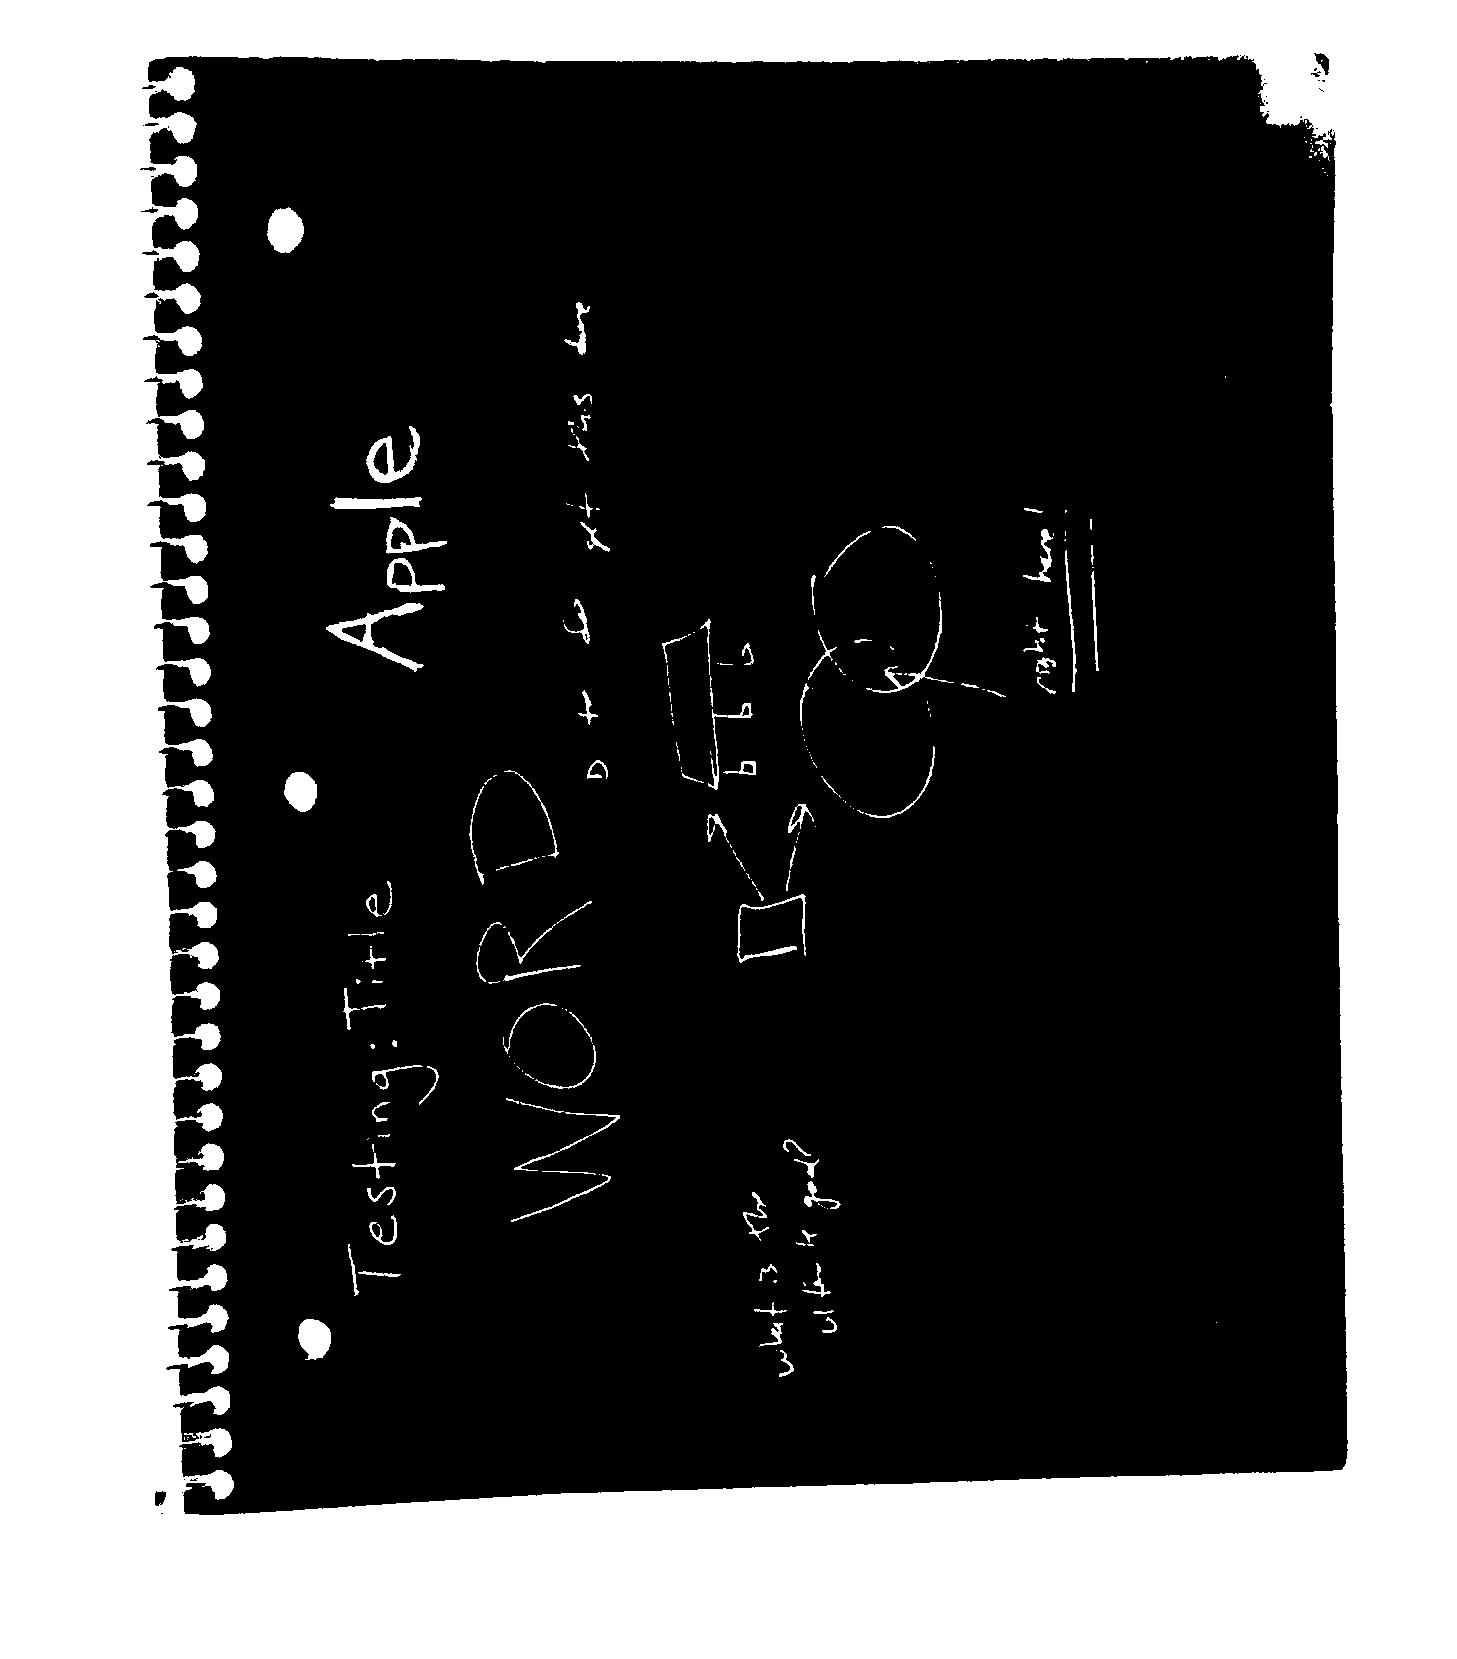 Testing: Title Apple
WORD
D to do get this done
b b b
what is the
ultimate goal?
right here!